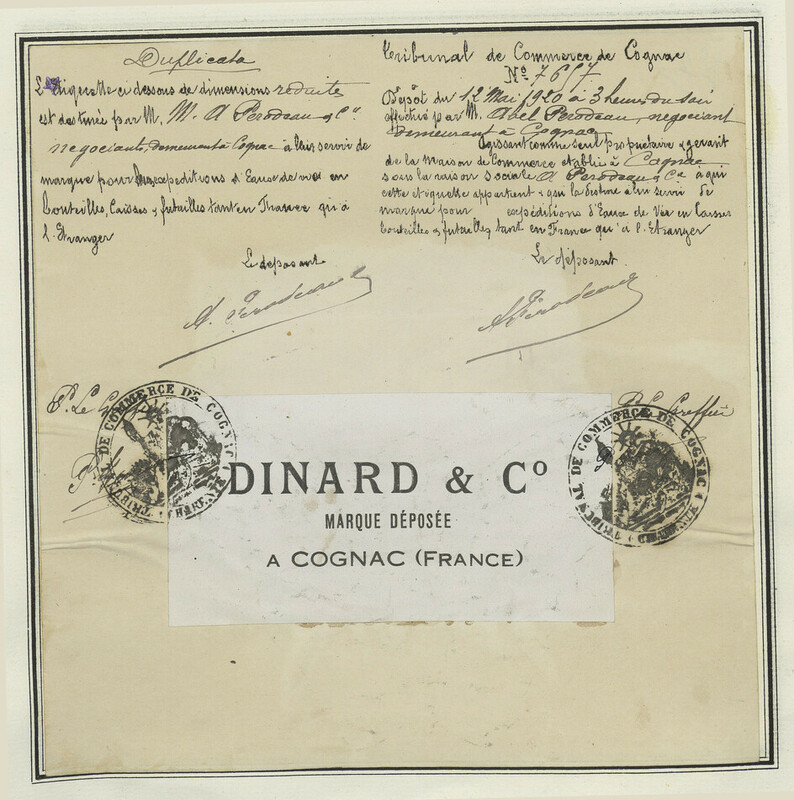 Duplicata
L'Etiquette ci dessous de dimensions réduite
est destinée par M. M. A Perodeau & Cie
negociants, demeurant à Cognac à leur servir de
marque pour expeditions d'Eaux de vie en
bouteilles, Caisses & futailles tant en France qu'à
l'Etranger
Le déposant
A. Perodeau
P. Le Greffier
Tribunal de Commerce de Cognac
No 7617
Dépôt du 12 Mai 1920 à 3 heures du soir
effectué par M. Abel Perodeau, negociant
demeurant à Cognac
Agissant comme seul propriétaire & gerant
de la Maison de Commerce établie à Cognac
sous la raison Sociale A Perodeau & Cie à qui
cette étiquette appartient & qui la destine à lui servir de
marque pour expéditions d'Eaux de Vie en Caisses
bouteilles & futailles, tant en France qu'à l'Etranger
Le déposant.
A Perodeau
P. Le Greffier
TRIBUNAL DE COMMERCE DE COGNAC
DINARD & Co
MARQUE DÉPOSÉE
A COGNAC (FRANCE)
TRIBUNAL DE COMMERCE DE COGNAC